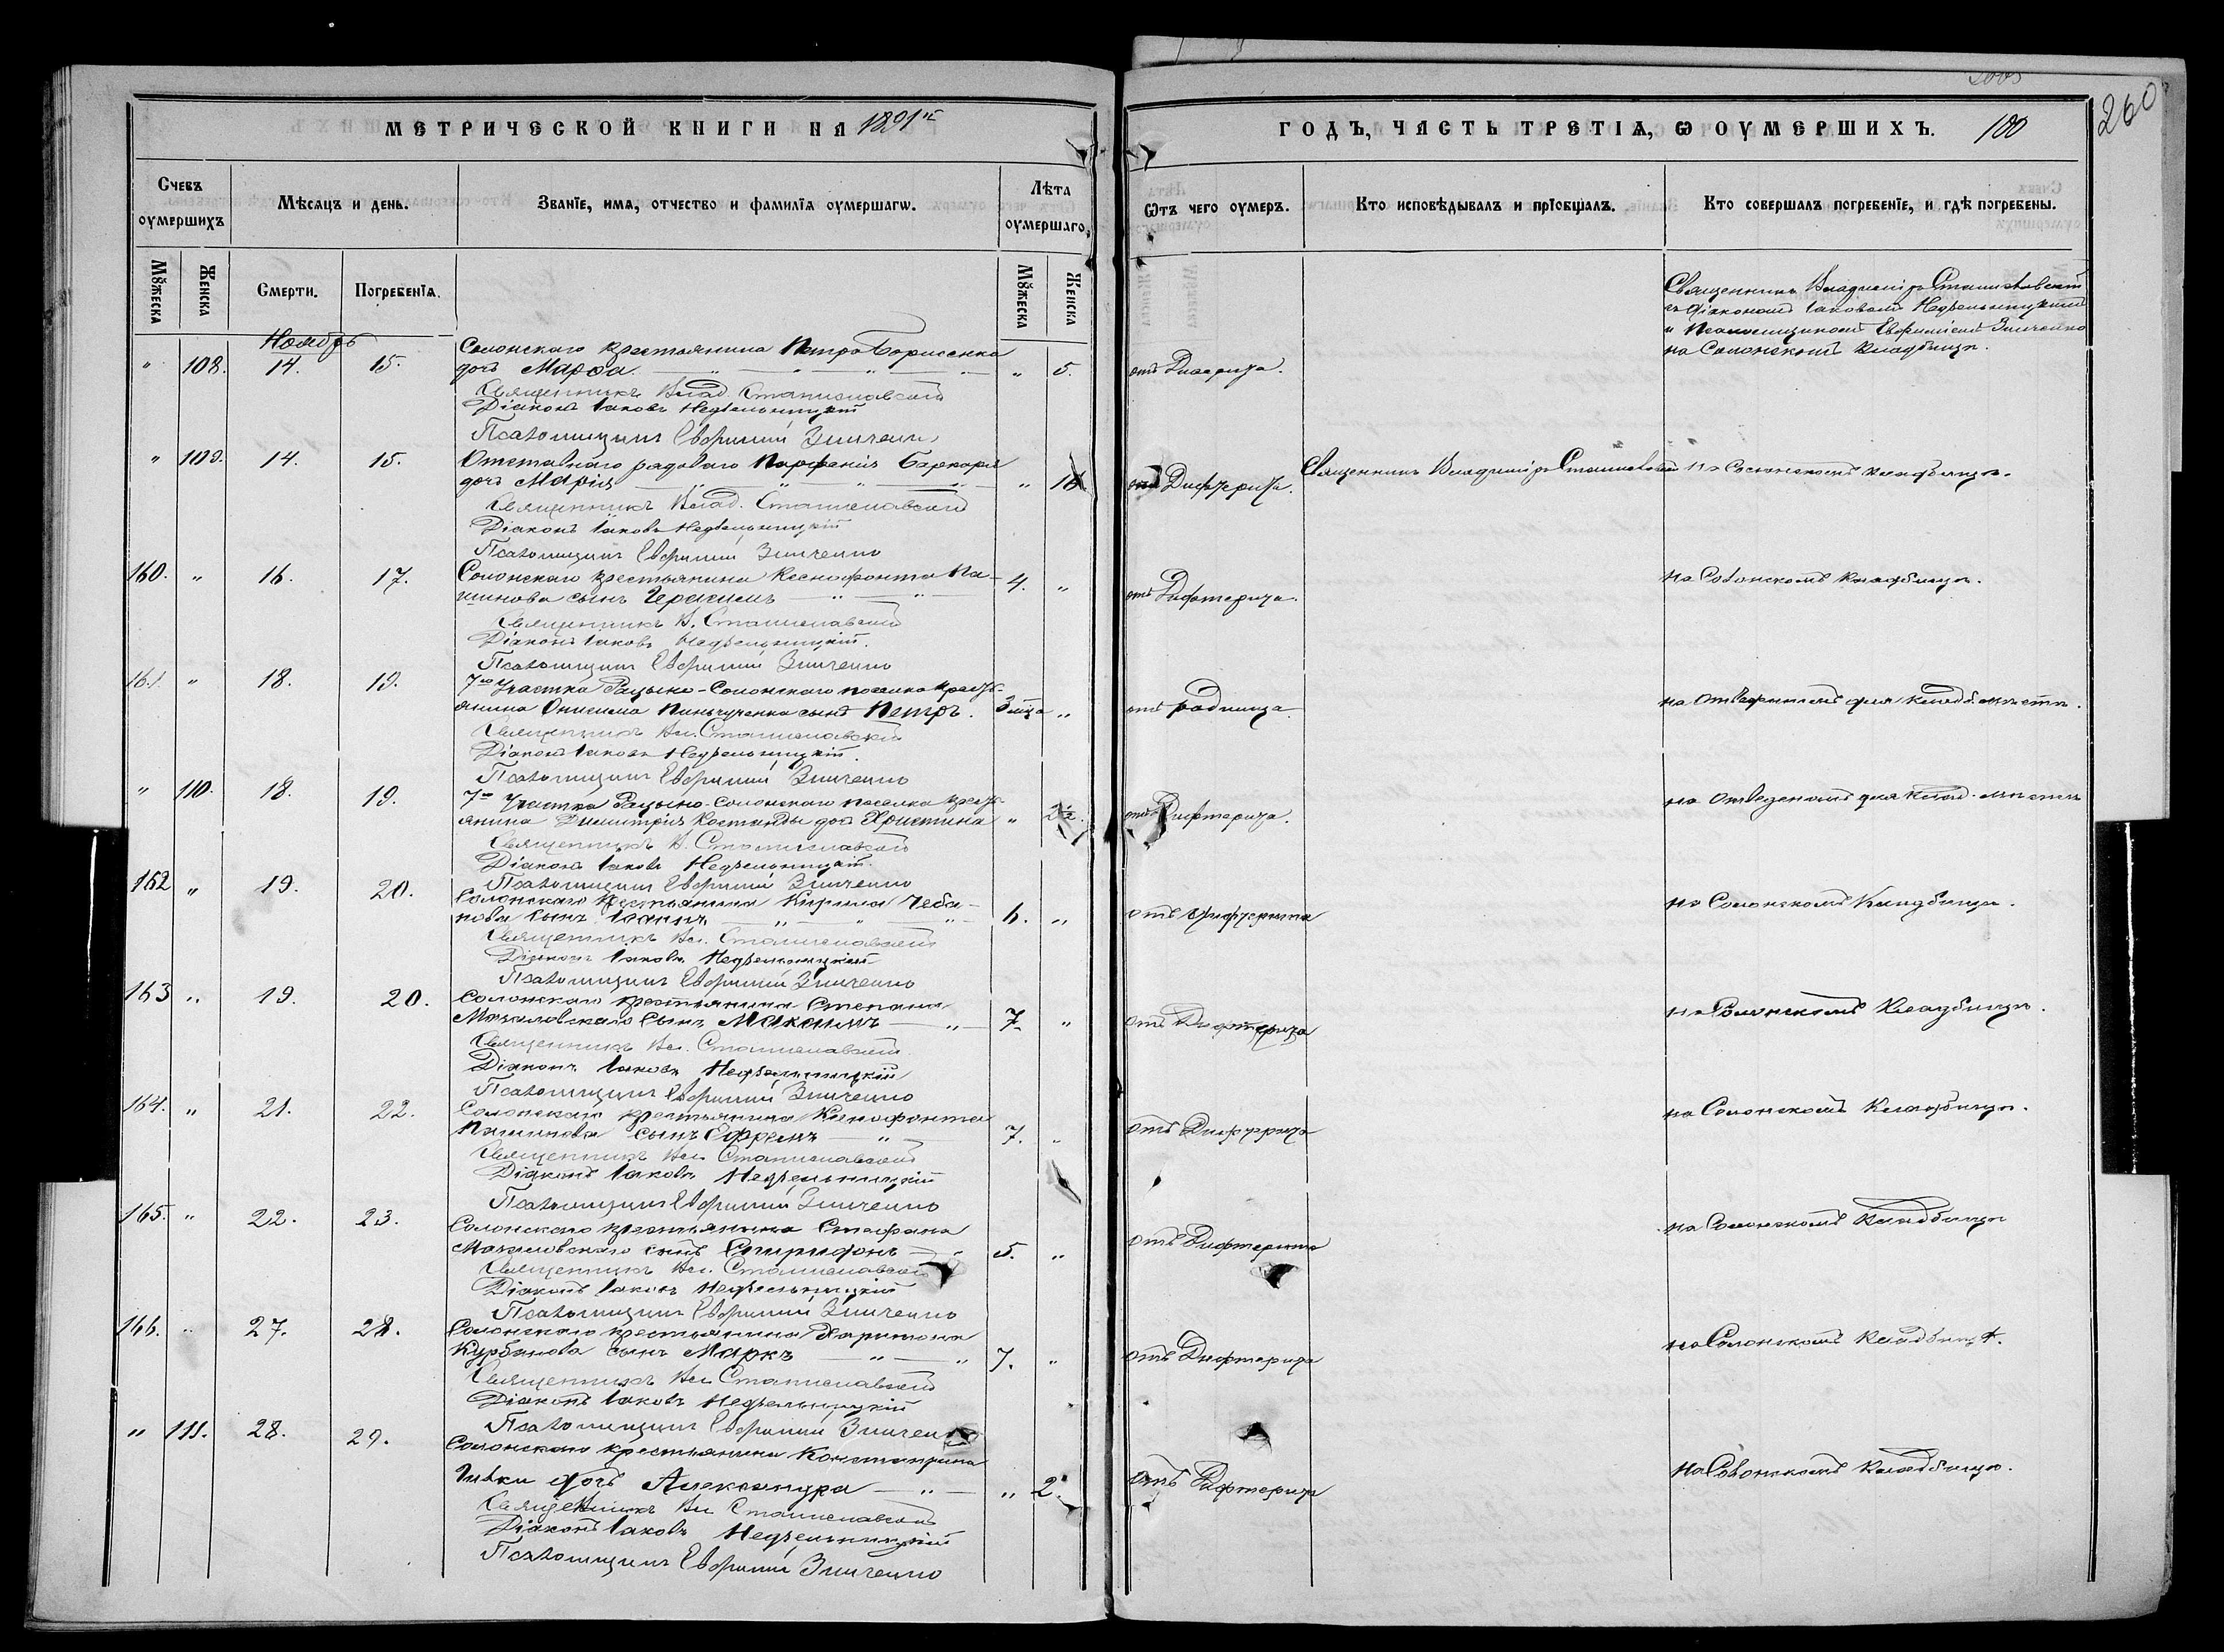 260
МЕТРИЧЕСКОЙ КНИГИ НА 1891й
ГОДЪ, ЧАСТЬ ТРЕТІЯ, Ѡ ОУМЕРШИХЪ. 100
Счевъ оумершихъ
Мѣсяцъ и день.
Званїе, имя, отчество и фамилїя оумершагѡ.
Лѣта оумершаго,
Ѿтъ чего оумеръ.
Кто исповѣдывалъ и прїобщалъ.
Кто совершалъ погребенїе, и гдѣ погребены.
Мꙋжеска
Женска
Смерти.
Погребенїя.
Мꙋжеска
Женска
Ноябрь
Священникъ Владиміръ Станиславскій
съ діакономъ Іаковомъ Недѣльницкимъ
и Псаломщикомъ Евфиміемъ Зинченко
на Солонскомъ кладбищѣ.
Солонскаго крестьянина Петра Борисенка
" 108. 14. 15. дочь Марѳа " 5. отъ Дифтерита.
Священникъ Влад. Станиславскій
Діаконъ Іаковъ Недѣльницкій
Псаломщикъ Евфимій Зинченко
" 109. 14. 15. Отставного рядоваго Парфенія
дочь Марія " отъ Дифтерита. Священникъ Владиміръ Станиславскій на Солонскомъ кладбищѣ.
Священникъ Влад. Станиславскій
Діаконъ Іаковъ Недѣльницкій
Псаломщикъ Евфимій Зинченко
160. " 16. 17. Солонскаго крестьянина Ксенофонта Па-
шинова сынъ Герасимъ 4. " отъ Дифтерита. на Солонскомъ кладбищѣ.
Священникъ В. Станиславскій
Діаконъ Іаковъ Недѣльницкій.
Псаломщикъ Евфимій Зинченко
161. " 18. 19. 7го Участка Рацыно-Солонскаго поселка крестья-
янина Онисима сынъ Петръ. 3 мѣца " отъ родимца. на отведенномъ для кладб. мѣстѣ.
Священникъ Вл. Станиславскій
Діаконъ Іаковъ Недѣльницкій.
Псаломщикъ Евфимій Зинченко
" 110. 18. 19. 7го Участка Рацыно-Солонскаго поселка кресть-
янина Димитрія Костанды дочь Христина " 2½. отъ Дифтерита. на отведеномъ для клад. мѣстѣ
Священникъ В. Станиславскій
Діаконъ Іаковъ Недѣльницкій.
Псаломщикъ Евфимій Зинченко
162 " 19. 20. Солонскаго крестьянина Кирила Чеба-
нова сынъ Іоаннъ 6. " отъ дифтерита на Солонскомъ Кладбищѣ.
Священникъ Вл. Станиславскій
Діаконъ Іаковъ Недѣльницкій
Псаломщикъ Евфимій Зинченко
163 " 19. 20. Солонскаго крестьянина Степана
сынъ Максимъ 7. " отъ Дифтерита на Солонскомъ Кладбищѣ.
Священникъ Вл. Станиславскій
Діаконъ Іаковъ Недѣльницкій
Псаломщикъ Евфимій Зинченко
164. " 21. 22. Солонскаго крестьянина Ксенофонта
Пашинова сынъ Ефремъ 7. " отъ Дифтерита на Солонскомъ Кладбищѣ.
Священникъ Вл. Станиславскій
Діаконъ Іаковъ Недѣльницкій
Псаломщикъ Евфимій Зинченко
165. " 22. 23. Солонскаго крестьянина Стефана
сынъ Спиридонъ 5. " отъ Дифтерита на Солонскомъ Кладбищѣ
Священникъ Вл. Станиславскій
Діаконъ Іаковъ Недѣльницкій
Псаломщикъ Евфимій Зинченко
166. " 27. 28. Солонскаго крестьянина Харитона
Курбанова сынъ Маркъ 7. " отъ Дифтерита на Солонскомъ Кладбищѣ.
Священникъ Вл Станиславскій
Діаконъ Іаковъ Недѣльницкій
Псаломщикъ Евфимій Зинченко
" 111. 28. 29. Солонскаго крестьянина Константина
дочь Александра " 2. отъ Дифтерита на Солонскомъ Кладбищѣ.
Священникъ Вл Станиславскій
Діаконъ Іаковъ Недѣльницкій
Псаломщикъ Евфимій Зинченко